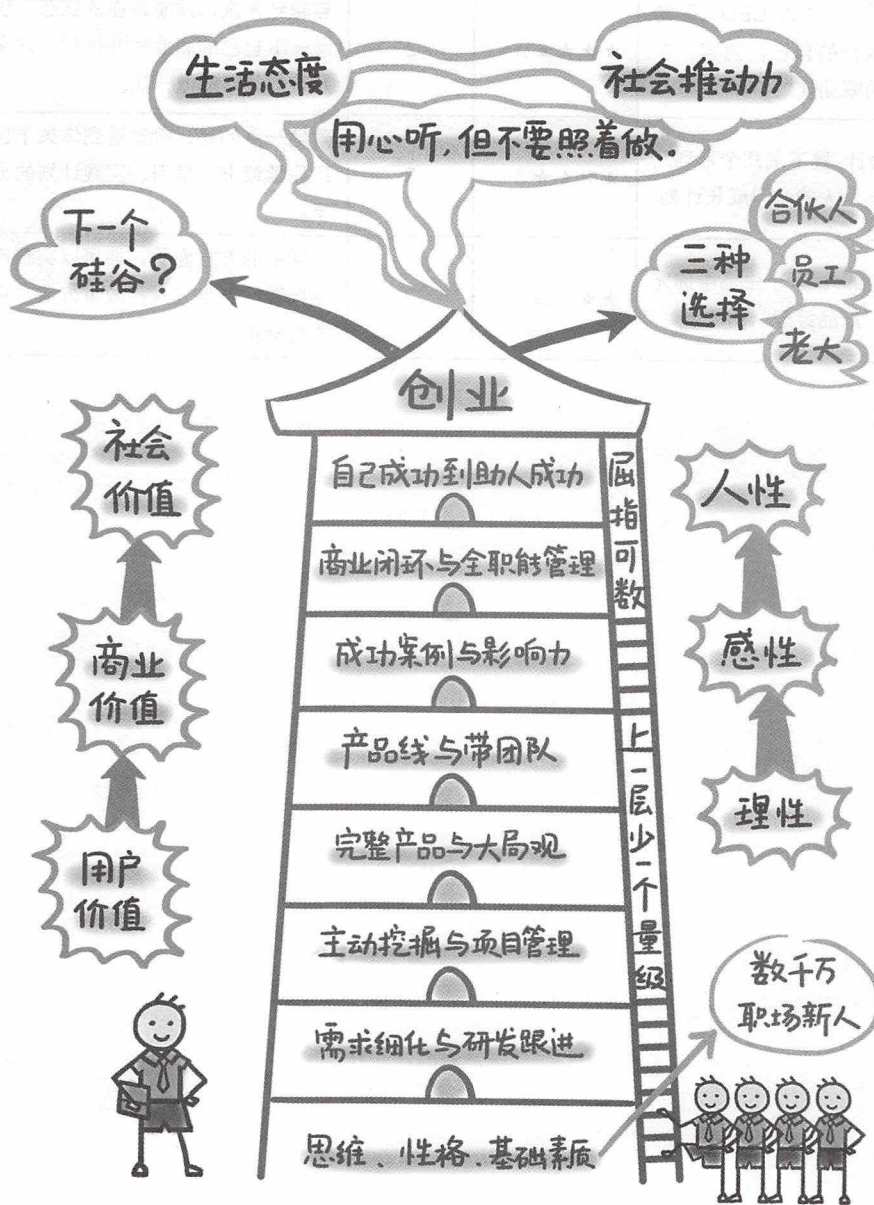 生活态度
社会推动力
用心听,但不要照着做.
下一个
硅谷?
合伙人
三种
选择
员工
老大
创业
自己成功到助人成功
商业闭环与全职能管理
成功案例与影响力
产品线与带团队
完整产品与大局观
主动挖掘与项目管理
需求细化与研发跟进
思维、性格、基础素质
屈指可数
上一层少一个量级
社会
价值
商业
价值
用户
价值
人性
感性
理性
数千万
职场新人